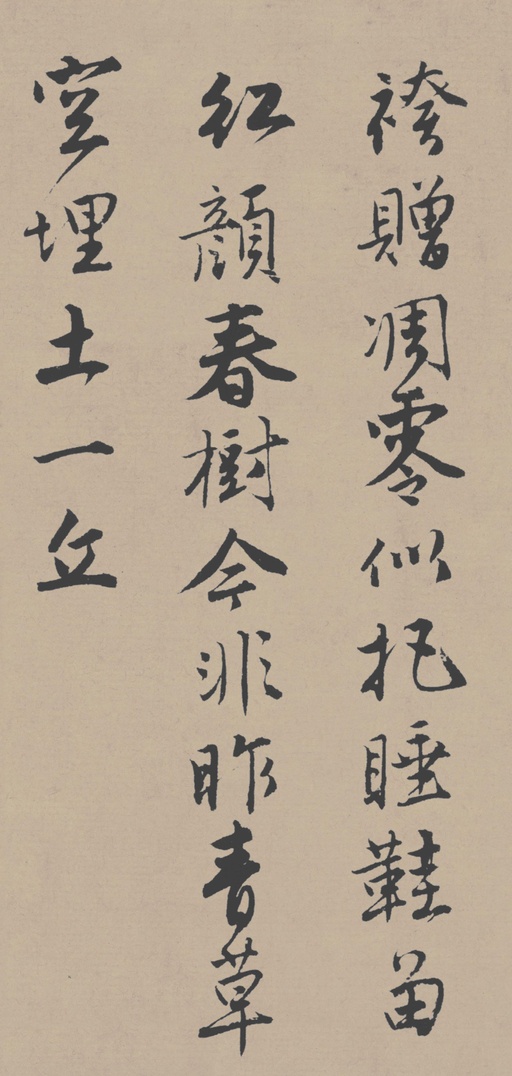 袴贈凋零似把睡鞋留
紅顔春樹今非昨青草
空埋土一丘